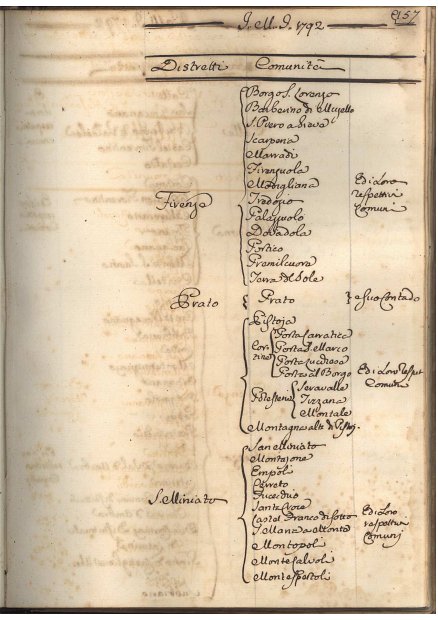 157
J. M. J. 1792
Distretti Comunità
Borgo S. Lorenzo
Barberino di Mugello
S. Piero a Sieve
Scarperia
Marradi
Firenzuola
Modigliana
Tredozio
Palazzuolo
Dovadola
Portico
Premilcuore
Terra del Sole
Firenze
Ed i Loro
respettivi
Comuni
Prato Prato e suo Contado
Pistoja
Cortine
Porta Carratica
Porta S. Marco
Porta Lucchese
Porta al Borgo
Potesterie
Seravalle
Tizzana
Montale
Montagna alta di Pistoj.
Ed i Loro respet
Comuni
San Miniato
Montajone
Empoli
Cerreto
Fucecchio
Santa Croce
Castel Franco di Sotto
S. Maria a Monte
Montopoli
Monte Calvoli
Monte Spertoli
S. Miniato
Ed i Loro
respettivi
Comunj